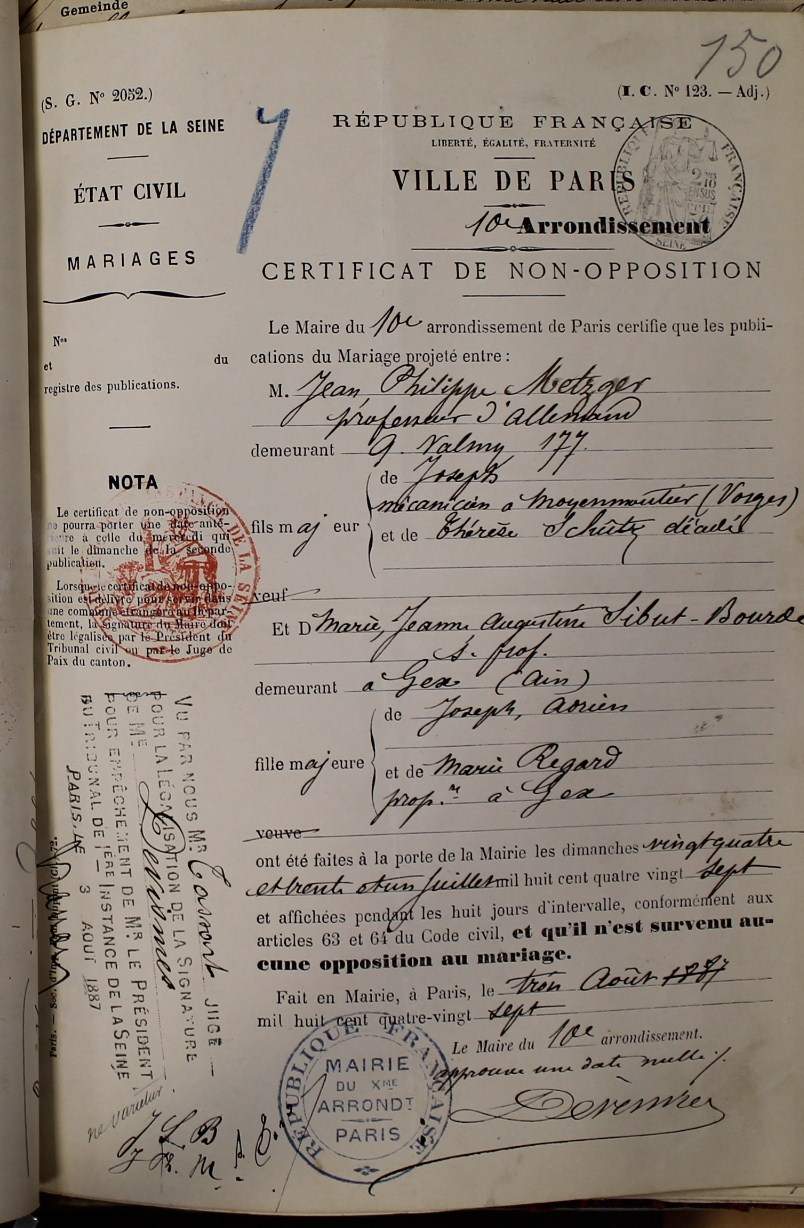 Gemeinde
150
(S. G. Nº 2052.)
(I. C. Nº 123. — Adj.)
DÉPARTEMENT DE LA SEINE
ÉTAT CIVIL
MARIAGES
7
RÉPUBLIQUE FRANÇAISE
LIBERTÉ, ÉGALITÉ, FRATERNITÉ
VILLE DE PARIS
10e Arrondissement
RÉPUBLIQUE FRANÇAISE
SEINE
CERTIFICAT DE NON-OPPOSITION
Nos
et du
registre des publications.
NOTA
Le certificat de non-opposition
ne pourra porter une date anté-
rieure à celle du mercredi qui
suit le dimanche de la seconde
publication.
Lorsque le certificat de non-oppo-
sition est délivré pour servir dans
une commune étrangère au dépar-
tement, la signature du Maire doit
être légalisée par le Président du
Tribunal civil ou par le Juge de
Paix du canton.
Le Maire du 10e arrondissement de Paris certifie que les publi-
cations du Mariage projeté entre :
M. Jean Philippe Metzger
professeur d'allemand
demeurant q. Valmy 177
de Joseph
mécanicien à Moyenmoutier (Vosges)
fils majeur
et de Thérèse Schutz décédée
veuf
Et D Marie, Jeanne Augustine Sibut-Bourde
s. prof.
demeurant à Gex (Ain)
de Joseph, Adrien
fille majeure
et de Marie Regard
prop.re à Gex
veuve
ont été faites à la porte de la Mairie les dimanches vingt quatre
et trente et un Juillet mil huit cent quatre vingt sept
et affichées pendant les huit jours d'intervalle, conformément aux
articles 63 et 64 du Code civil, et qu'il n'est survenu au-
cune opposition au mariage.
Fait en Mairie, à Paris, le trois Août 1887
mil huit cent quatre-vingt sept
Le Maire du 10e arrondissement.
approuvé une date nulle
RÉPUBLIQUE FRANÇAISE
MAIRIE
DU XME
ARRONDT
PARIS
VU PAR NOUS MR JUGE
POUR LA LÉGALISATION DE LA SIGNATURE
DE ME
POUR EMPÊCHEMENT DE MR LE PRÉSIDENT
DU TRIBUNAL DE 1ÈRE INSTANCE DE LA SEINE
PARIS, LE 3 AOUT 1887
ne varietur
J L B